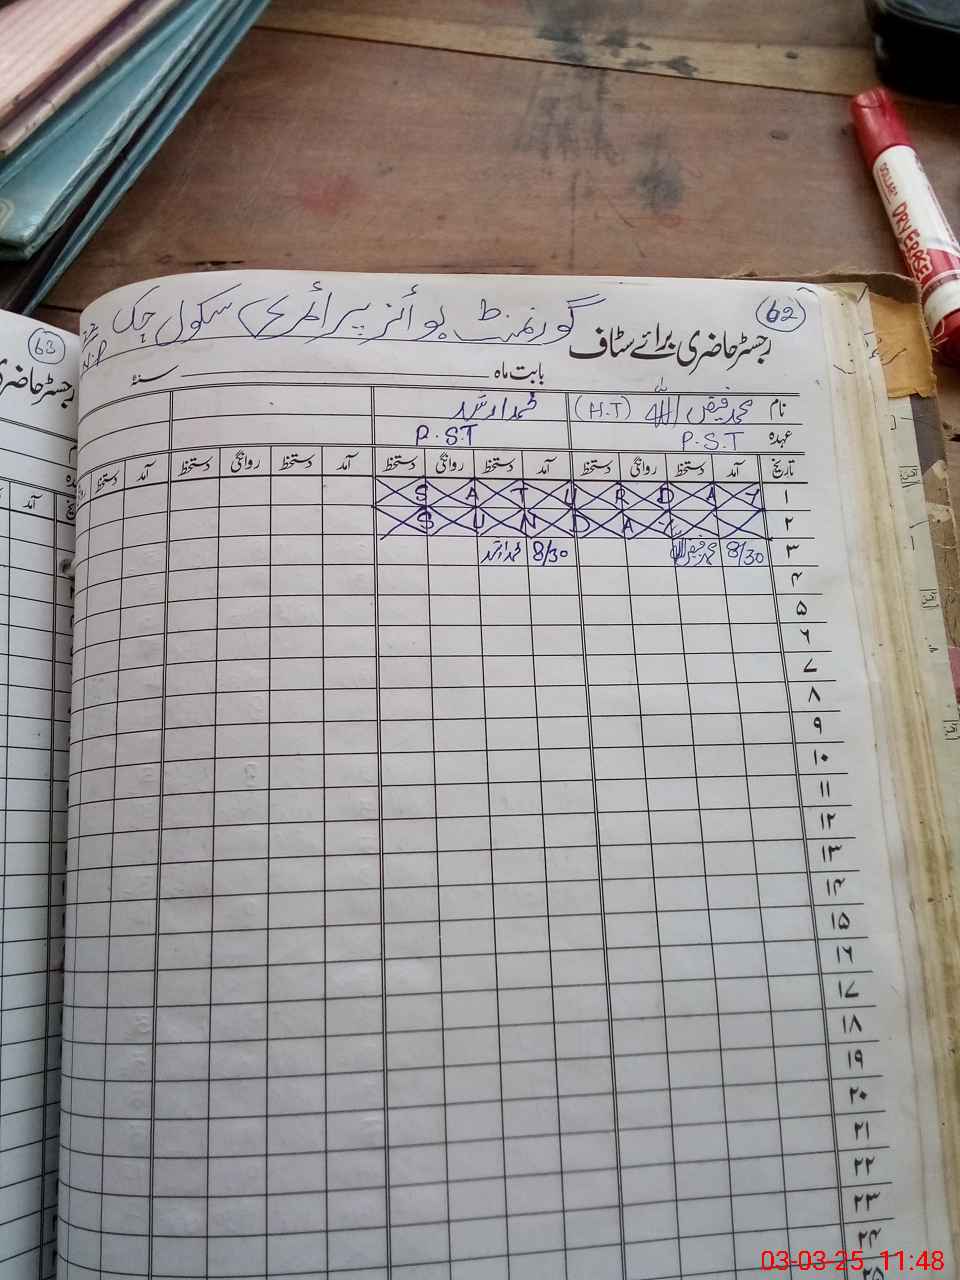 DOLLAR
DRY ERASE
62
گورنمنٹ بوائز پرائمری سکول چک
رجسٹر حاضری برائے سٹاف
بابت ماہ سنہ
نام محمد فیض اللہ (H.T) محمد ارشد
عہدہ P.S.T P.S.T
تاریخ آمد دستخظ روانگی دستخظ آمد دستخظ روانگی دستخظ آمد دستخظ روانگی دستخظ آمد دستخظ
۱ SATURDAY
۲ SUNDAY
۳ 8/30 محمد فیض اللہ 8/30 محمد ارشد
۴
۵
۶
۷
۸
۹
۱۰
۱۱
۱۲
۱۳
۱۴
۱۵
۱۶
۱۷
۱۸
۱۹
۲۰
۲۱
۲۲
۲۳
۲۴
۲۵
63
رجسٹر حاضری
آمد دستخظ
03-03-25 11:48